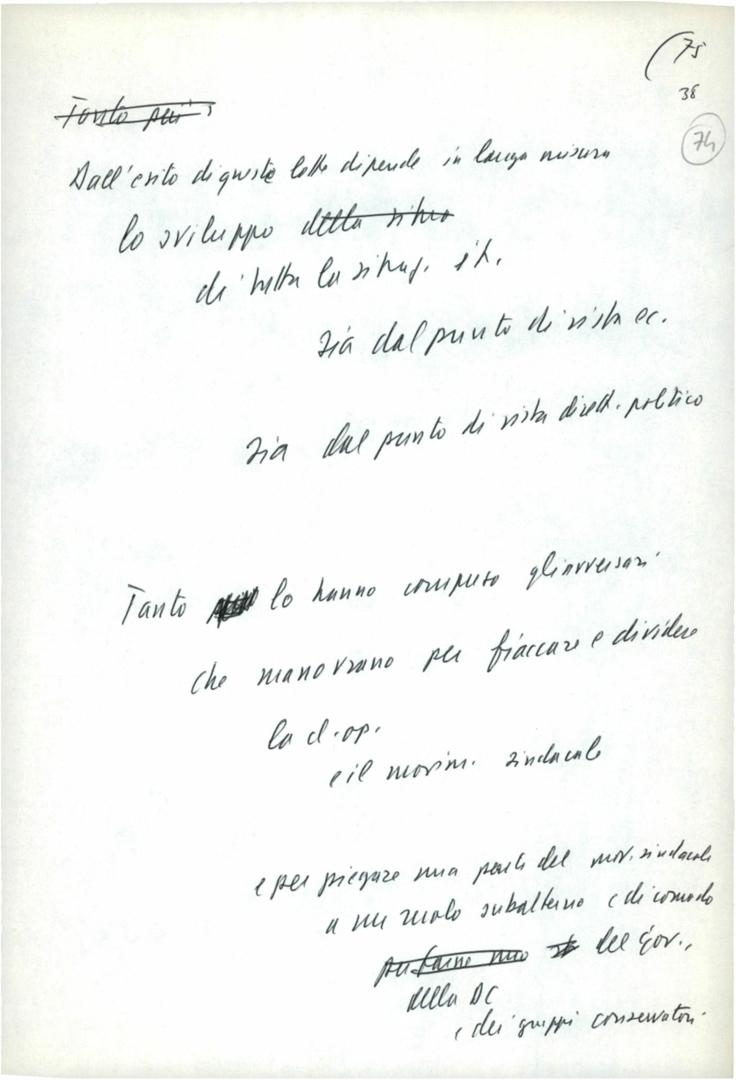 (75
38
74
Tanto più
Dall'esito di queste lotte dipende in larga misura
lo sviluppo della situa
di tutta la situaz. it.
sia dal punto di vista ec.
sia dal punto di vista dirett. politico
Tanto lo hanno compreso gli avversari
che manovrano per fiaccare e dividere
la cl. op.
e il movim. sindacale
e per piegare una parte del mov. sindacale
a un ruolo subalterno e di comodo
per farne uno del Gov.,
della DC
e dei gruppi conservatori.